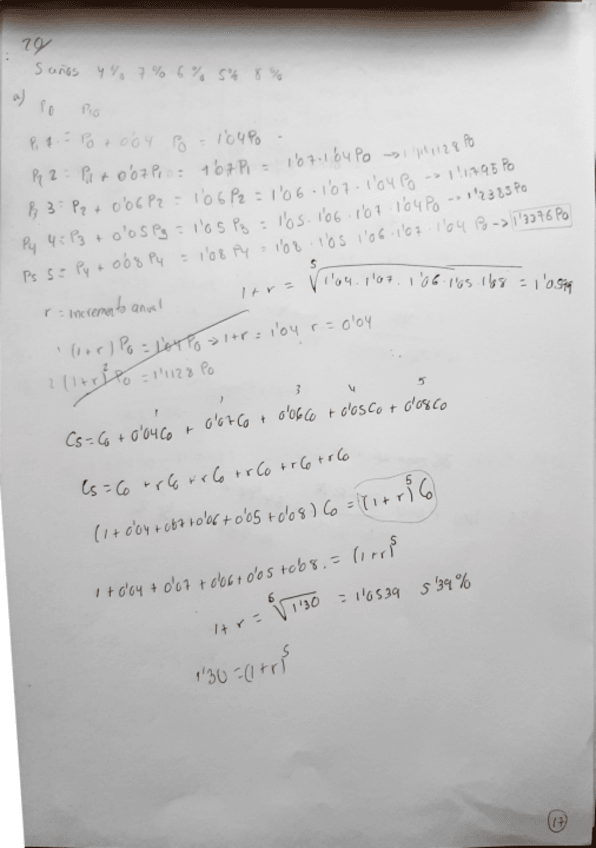 20
5 años 4% 7% 6% 5% 8%
a) P0 P10
P1 1 = P0 + 0'04 P0 = 1'04P0
P2 2 = P1 + 0'07P1 = 1'07P1 = 1'07·1'04P0 → 1'1128 P0
P3 3 = P2 + 0'06P2 = 1'06P2 = 1'06·1'07·1'04P0 → 1'1795 P0
P4 4 = P3 + 0'05P3 = 1'05P3 = 1'05·1'06·1'07·1'04P0 → 1'2385P0
P5 5 = P4 + 0'08P4 = 1'08P4 = 1'08·1'05 1'06·1'07·1'04 P0 → 1'3376P0
r = incremento anual
1+r = ⁵√1'04·1'07·1'06·1'05·1'08 = 1'0599
1 (1+r) P0 = 1'04P0 → 1+r = 1'04 r = 0'04
2 (1+r)² P0 = 1'1128 P0
1 2 3 4 5
C5 = C0 + 0'04C0 + 0'07C0 + 0'06C0 + 0'05C0 + 0'08C0
C5 = C0 + rC0 + rC0 + rC0 + rC0 + rC0
(1 + 0'04 + 0'07 + 0'06 + 0'05 + 0'08) C0 = (1+r)⁵ C0
1 + 0'04 + 0'07 + 0'06 + 0'05 + 0'08 = (1+r)⁵
1+r = ⁵√1'30 = 1'0539 5'39%
1'30 = (1+r)⁵
17